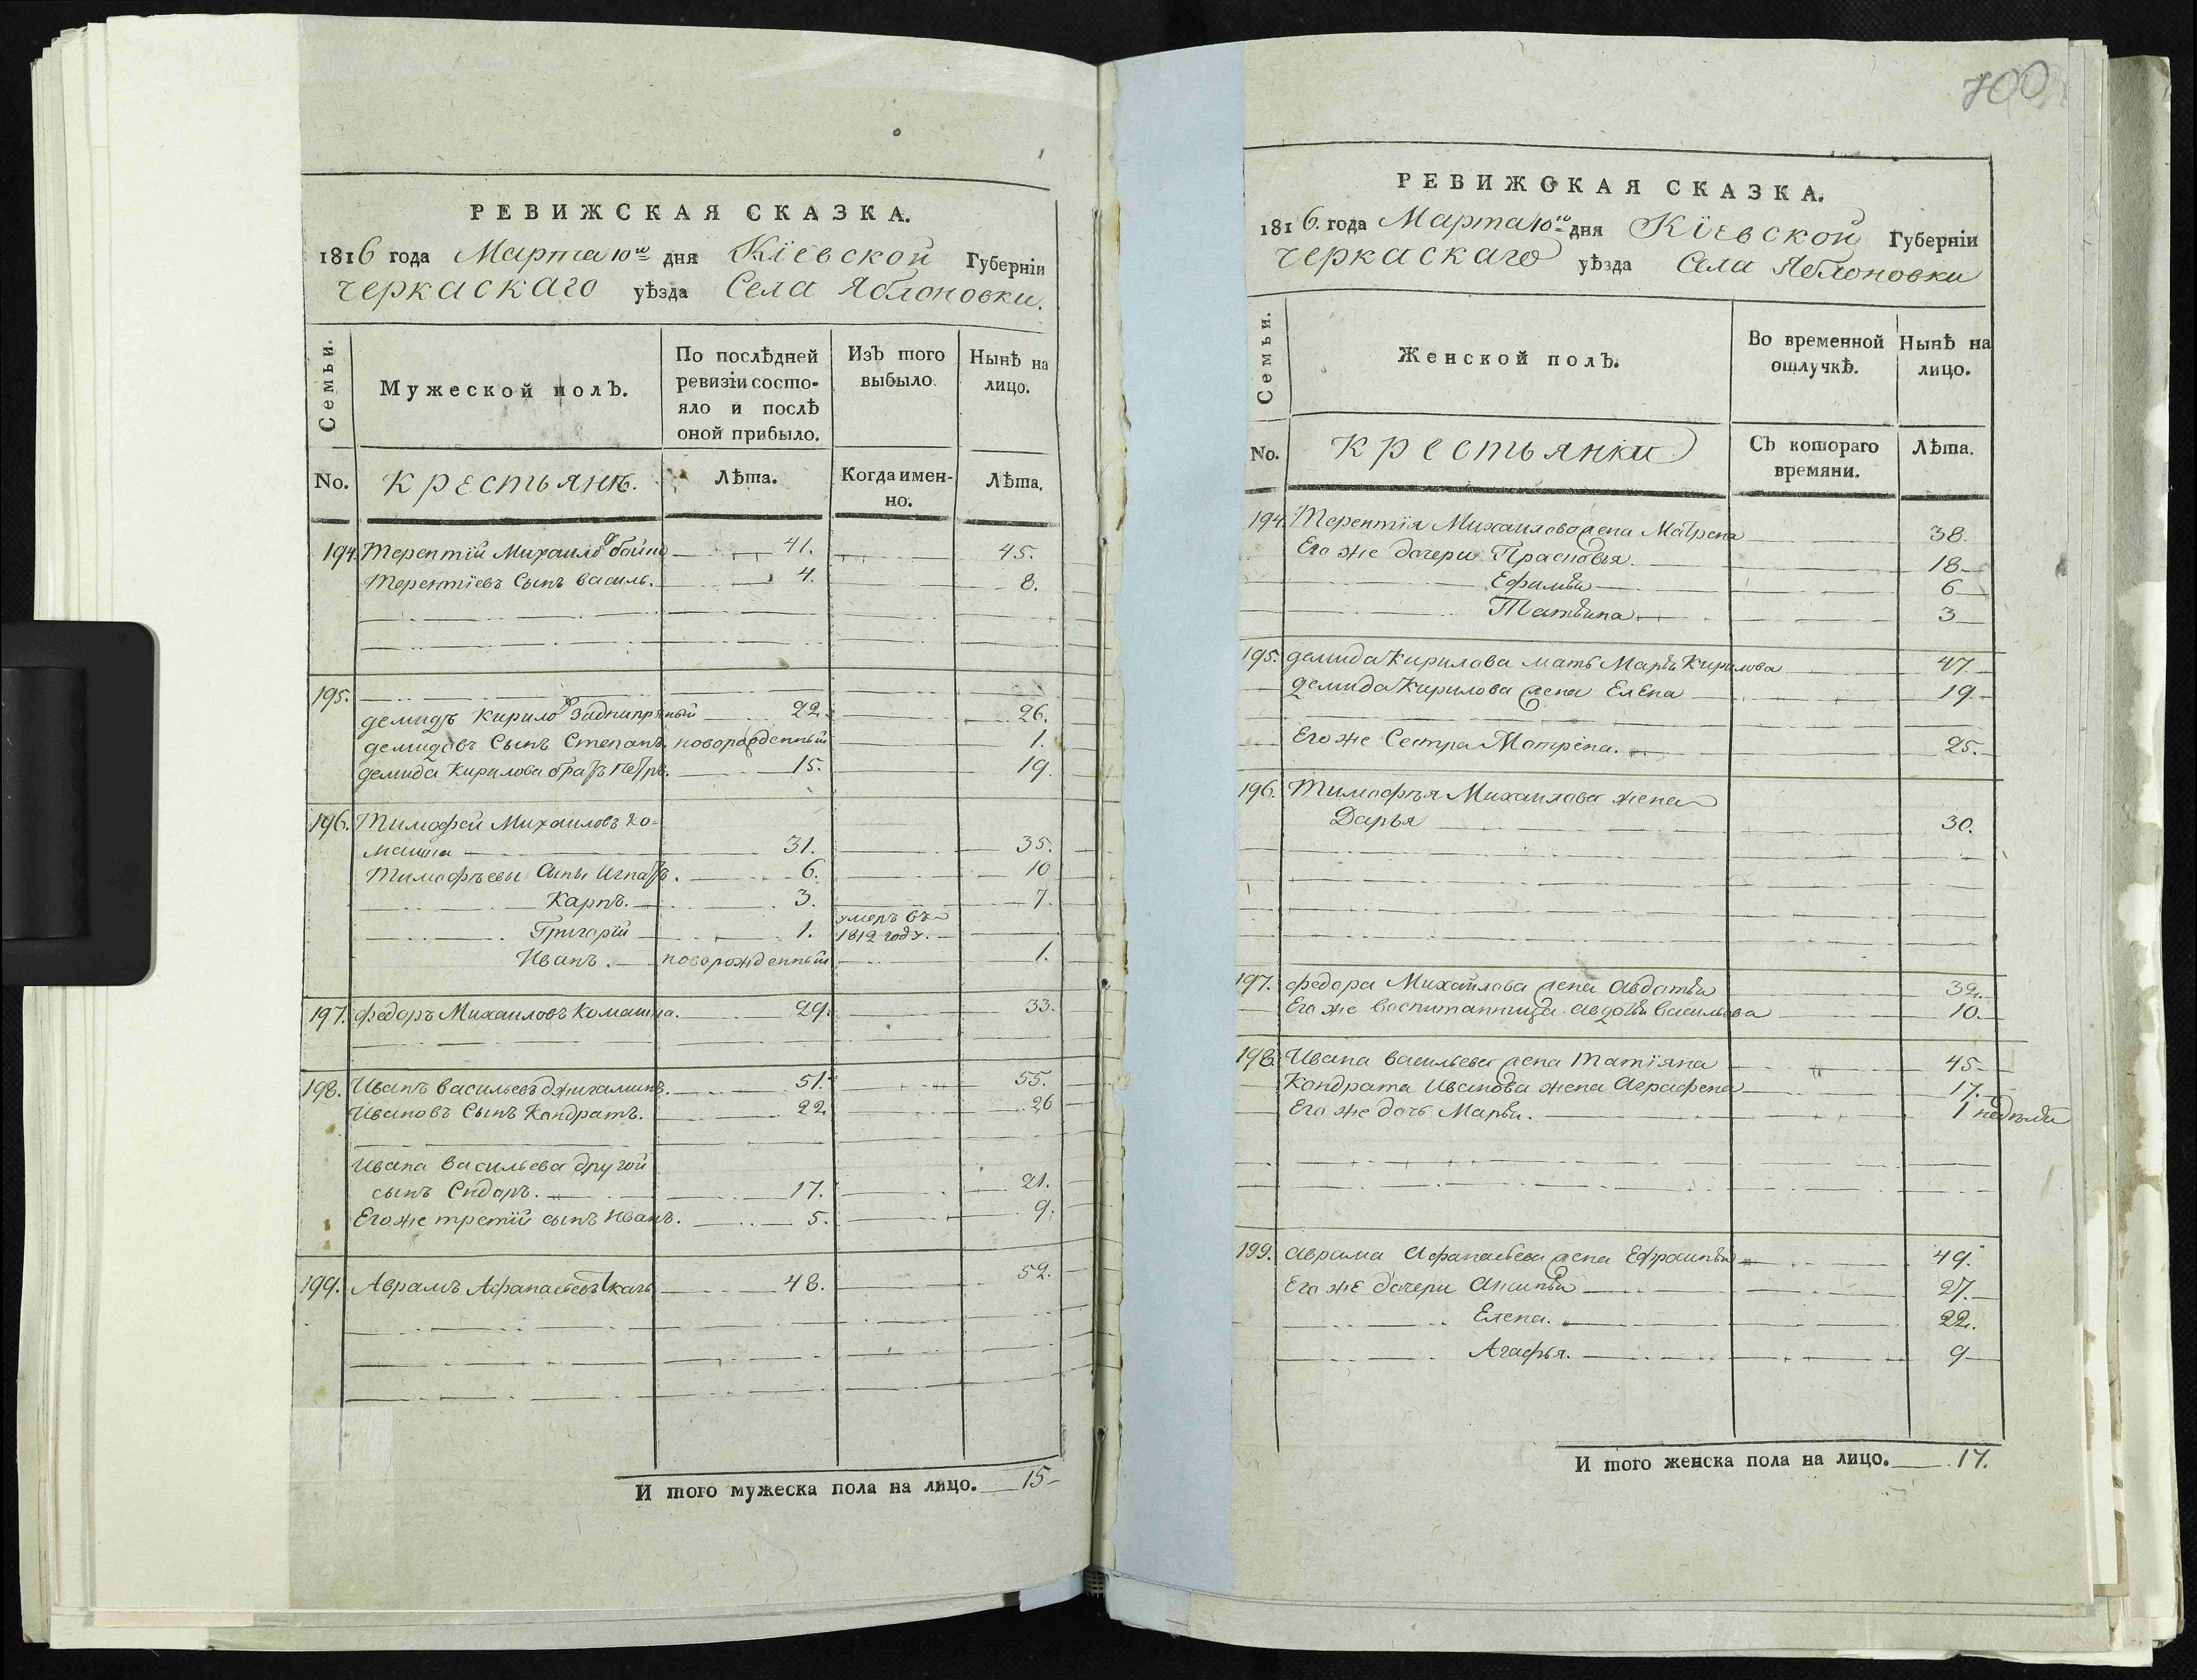 РЕВИЖСКАЯ СКАЗКА.
1816 года Марта 10го дня Кїевской Губернїи
Черкаскаго уѣзда Села Яблоновки.
Семьи.
Мужеской полЪ.
По послѣдней ревизїи состояло и послѣ оной прибыло.
ИзЪ того выбыло.
Нынѣ на лицо.
No.
Крестьянѣ.
Лѣта.
Когда имен-
но.
Лѣта.
194. Терентїй Михайловъ 41. 45.
Терентїевъ Сынъ василь. 4. 8.
195.
демидъ Кирилов Заднипряный 22. 26.
демидовъ Сынъ Степанъ. новорожденный 1.
демида Кирилова братъ Петръ. 15. 19.
196. Тимофей Михаиловъ Ко-
машна 31. 35.
Тимофѣевы Сыны Игнатъ. 6. 10
Карпъ. 3. 7.
Григорїй 1. умеръ въ
1812 году.
Иванъ. новорожденный 1.
197. федоръ Михаиловъ Комашна. 29. 33.
198. Иванъ васильевъ джигалинъ. 51. 55.
Ивановъ Сынъ Кондратъ. 22. 26
Ивана васильева другой
сынъ Сидоръ. 17. 21.
Егоже третїй сынъ Иванъ. 5. 9.
199. Аврамъ Афанасьевъ Ткачъ 48. 52.
И того мужеска пола на лицо. 15
700
РЕВИЖСКАЯ СКАЗКА.
1816. года Марта 10го дня Кїевской Губернїи
Черкаскаго уѣзда Села Яблоновки
Семьи.
Женской полЪ.
Во временной отлучкѣ.
Нынѣ на лицо.
No.
Крестьянки
СЪ котораго
времяни.
Лѣта.
194. Терентїя Михаилова жена Матрена 38.
Его же дочери Прасковья. 18
Ефимья 6
Татьяна 3
195. демида Кирилова мать Марья Кирилова 47.
демида Кирилова жена Елена 19.
Его же Сестра Мотрена. 25.
196. Тимофѣя Михаилова жена
Дарья 30.
197. федора Михайлова жена Авдотья 32.
Его же воспитанница Авдотья васильева 10.
198. Ивана васильева жена Татїяна 45
Кондрата Иванова жена Аграфена 17.
Его же дочь Марья. 1 недѣли
199. Аврама Афанасьева жена Ефросинья 49.
Его же дочери Аксинья 27.
Елена. 22.
Агафья. 9
И того женска пола на лицо. 17.